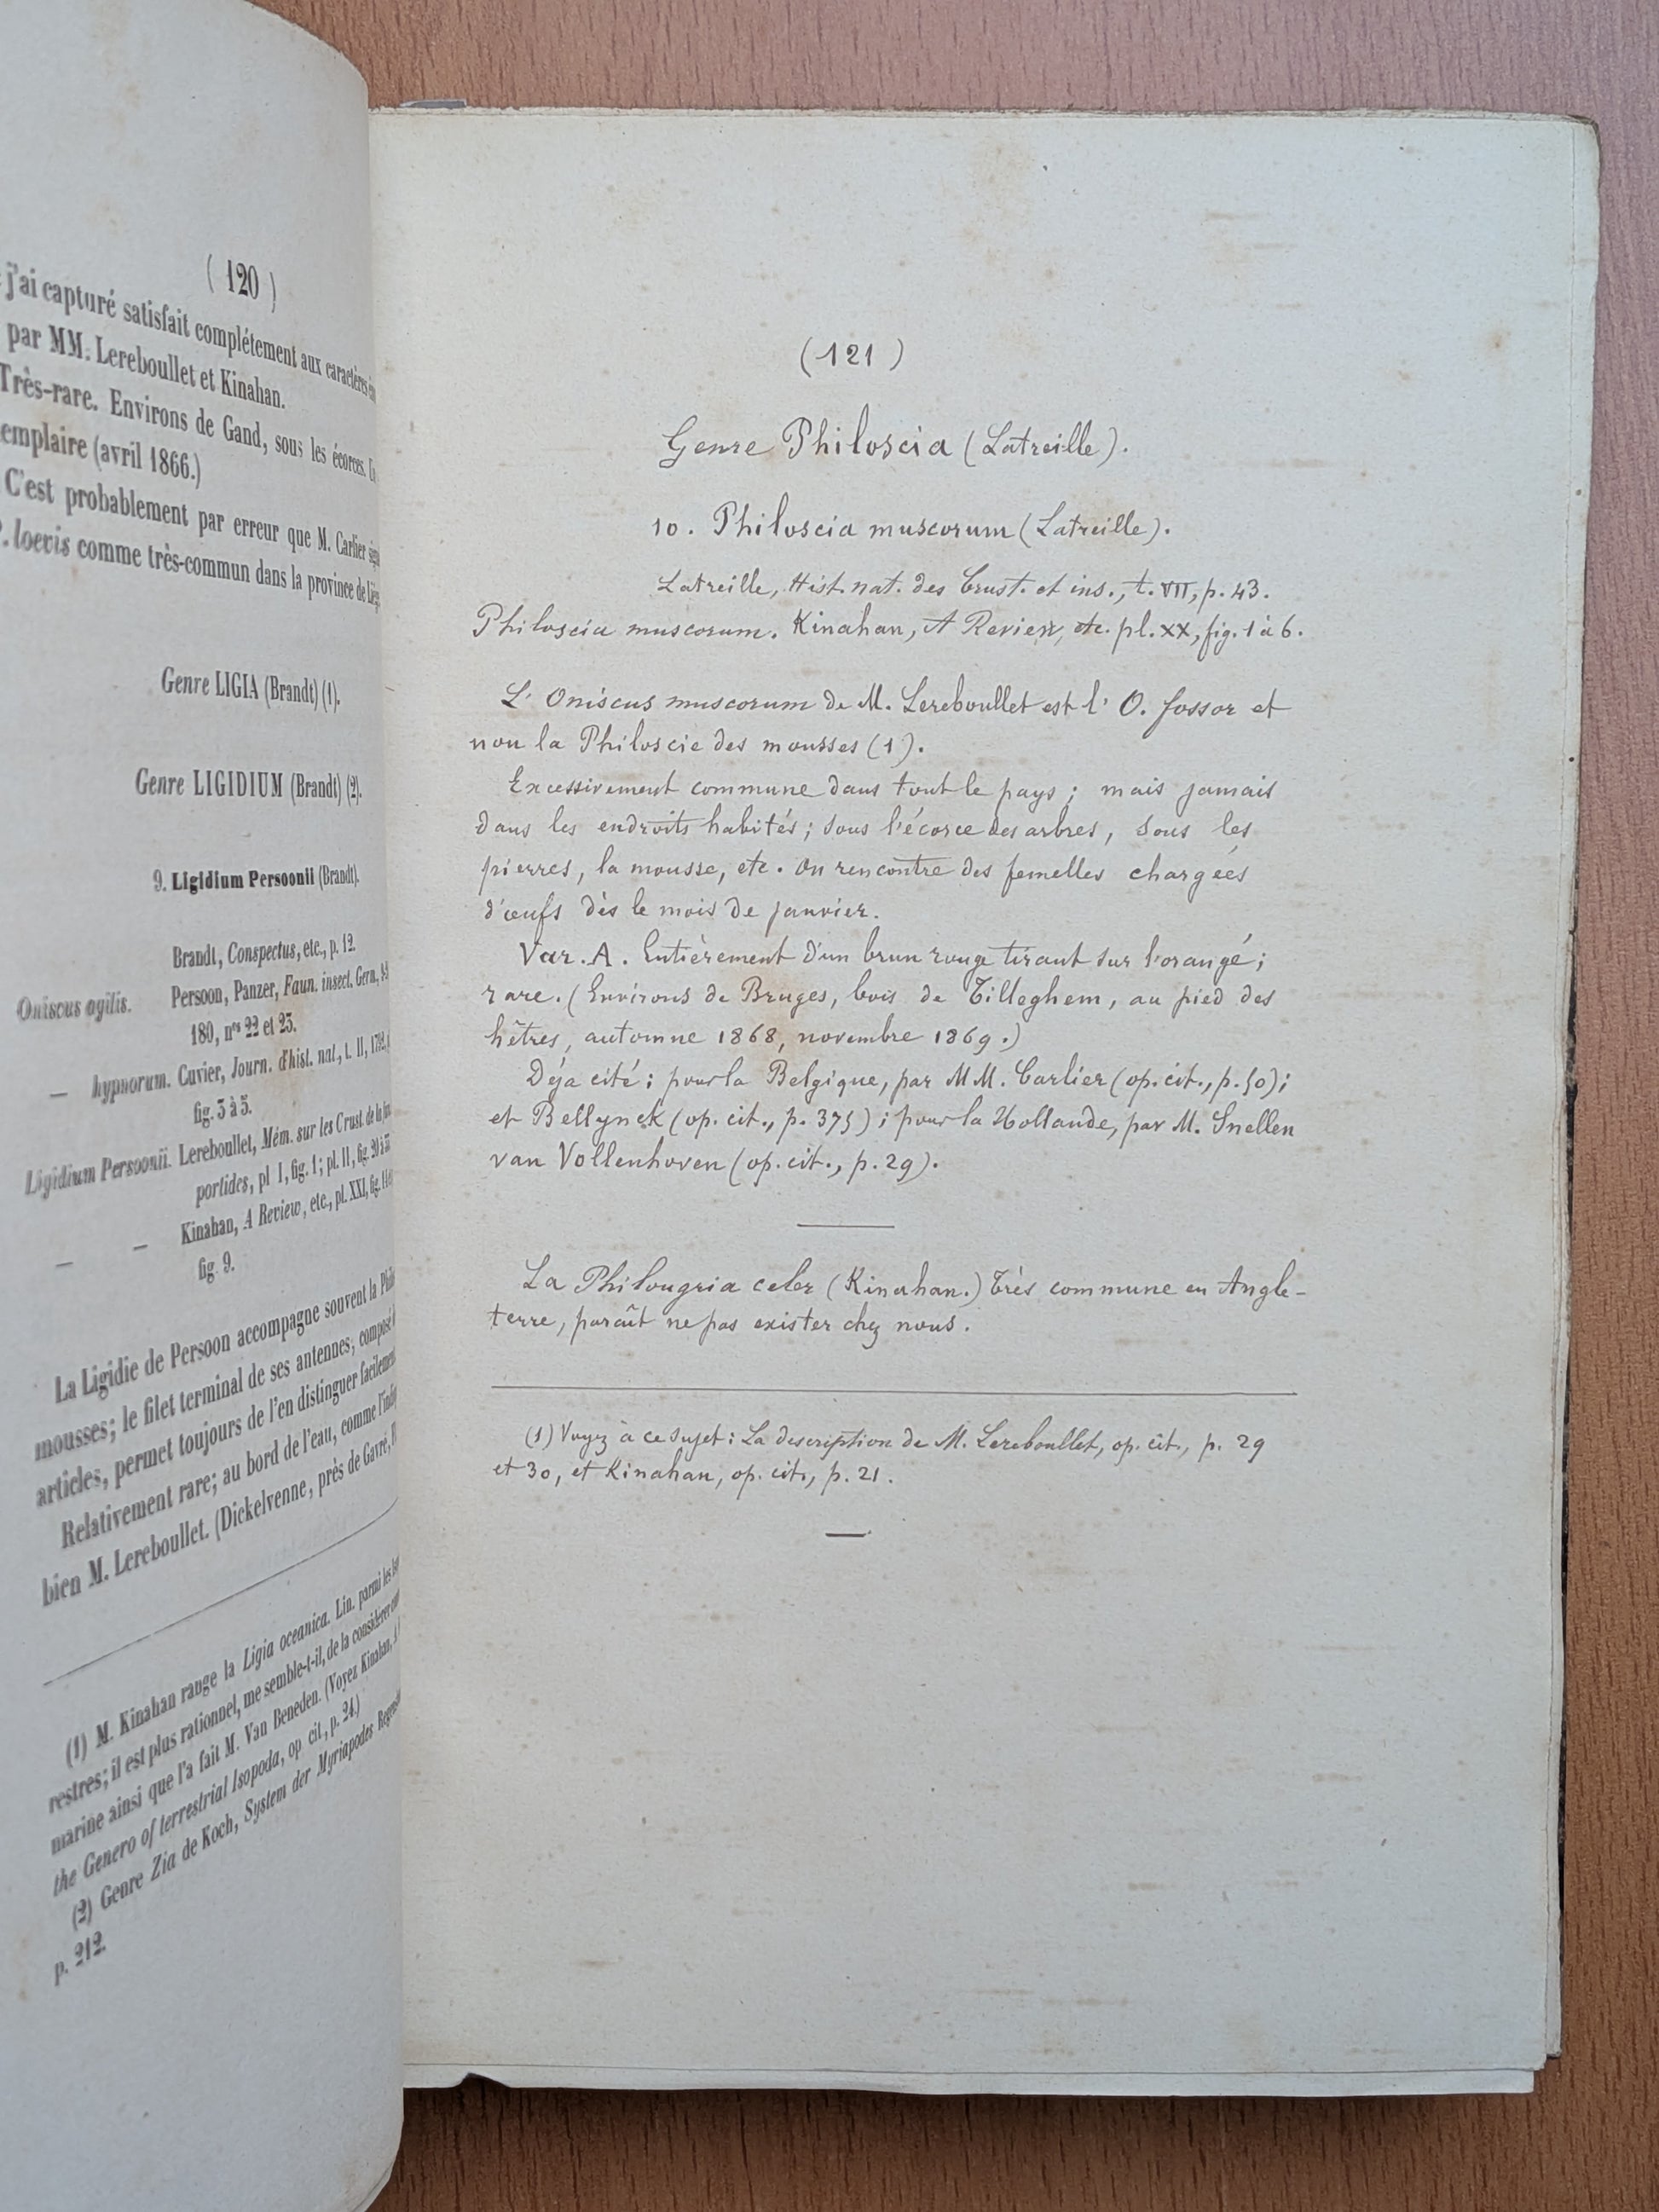 ( 120 )
j'ai capturé satisfait complétement aux caractères
par MM. Lereboullet et Kinahan.
Très-rare. Environs de Gand, sous les écorces.
emplaire (avril 1866.)
C'est probablement par erreur que M. Carlier
P. loevis comme très-commun dans la province de
Genre LIGIA (Brandt) (1).
Genre LIGIDIUM (Brandt) (2).
9. Ligidium Persoonii (Brandt).
Brandt, Conspectus, etc., p. 12.
Oniscus agilis. Persoon, Panzer, Faun. insect. Germ.,
180, nos 22 et 23.
— hypnorum. Cuvier, Journ. d'hist. nat., t. II,
fig. 3 à 5.
Ligidium Persoonii. Lereboullet, Mém. sur les Crust. de la
portides, pl I, fig. 1; pl. II, fig.
— — Kinahan, A Review, etc., pl. XXI, fig.
fig. 9.
La Ligidie de Persoon accompagne souvent la
mousses; le filet terminal de ses antennes, composé
articles, permet toujours de l'en distinguer facilement
Relativement rare; au bord de l'eau, comme
bien M. Lereboullet. (Dickelvenne, près de Gavre,
(1) M. Kinahan range la Ligia oceanica. Lin. parmi les
restres; il est plus rationnel, me semble-t-il, de la considérer
marine ainsi que l'a fait M. Van Beneden. (Voyez Kinahan,
the Genero of terrestrial Isopoda, op cit, p. 24.)
(2) Genre Zia de Koch, System der Myriapodes
p. 212.
(121)
Genre Philoscia (Latreille).
10. Philoscia muscorum (Latreille).
Latreille, Hist. nat. des Crust. et ins., t. VII, p. 43.
Philoscia muscorum. Kinahan, A Review, etc. pl. XX, fig. 1 à 6.
L'Oniscus muscorum de M. Lereboullet est l'O. fossor et
non la Philoscie des mousses (1).
Excessivement commune dans tout le pays; mais jamais
dans les endroits habités; sous l'écorce des arbres, sous les
pierres, la mousse, etc. On rencontre des femelles chargées
d'œufs dès le mois de janvier.
Var. A. Entièrement d'un brun rouge tirant sur l'orangé;
rare. (Environs de Bruges, bois de Tilleghem, au pied des
hêtres, automne 1868, novembre 1869.)
Déja cité: pour la Belgique, par MM. Carlier (op. cit., p. 50);
et Bellynck (op. cit., p. 375); pour la Hollande, par M. Snellen
van Vollenhoven (op. cit., p. 29).
La Philougria celer (Kinahan.) très commune en Angle-
terre, paraît ne pas exister chez nous.
(1) Voyez à ce sujet: La description de M. Lereboullet, op. cit., p. 29
et 30, et Kinahan, op. cit., p. 21.